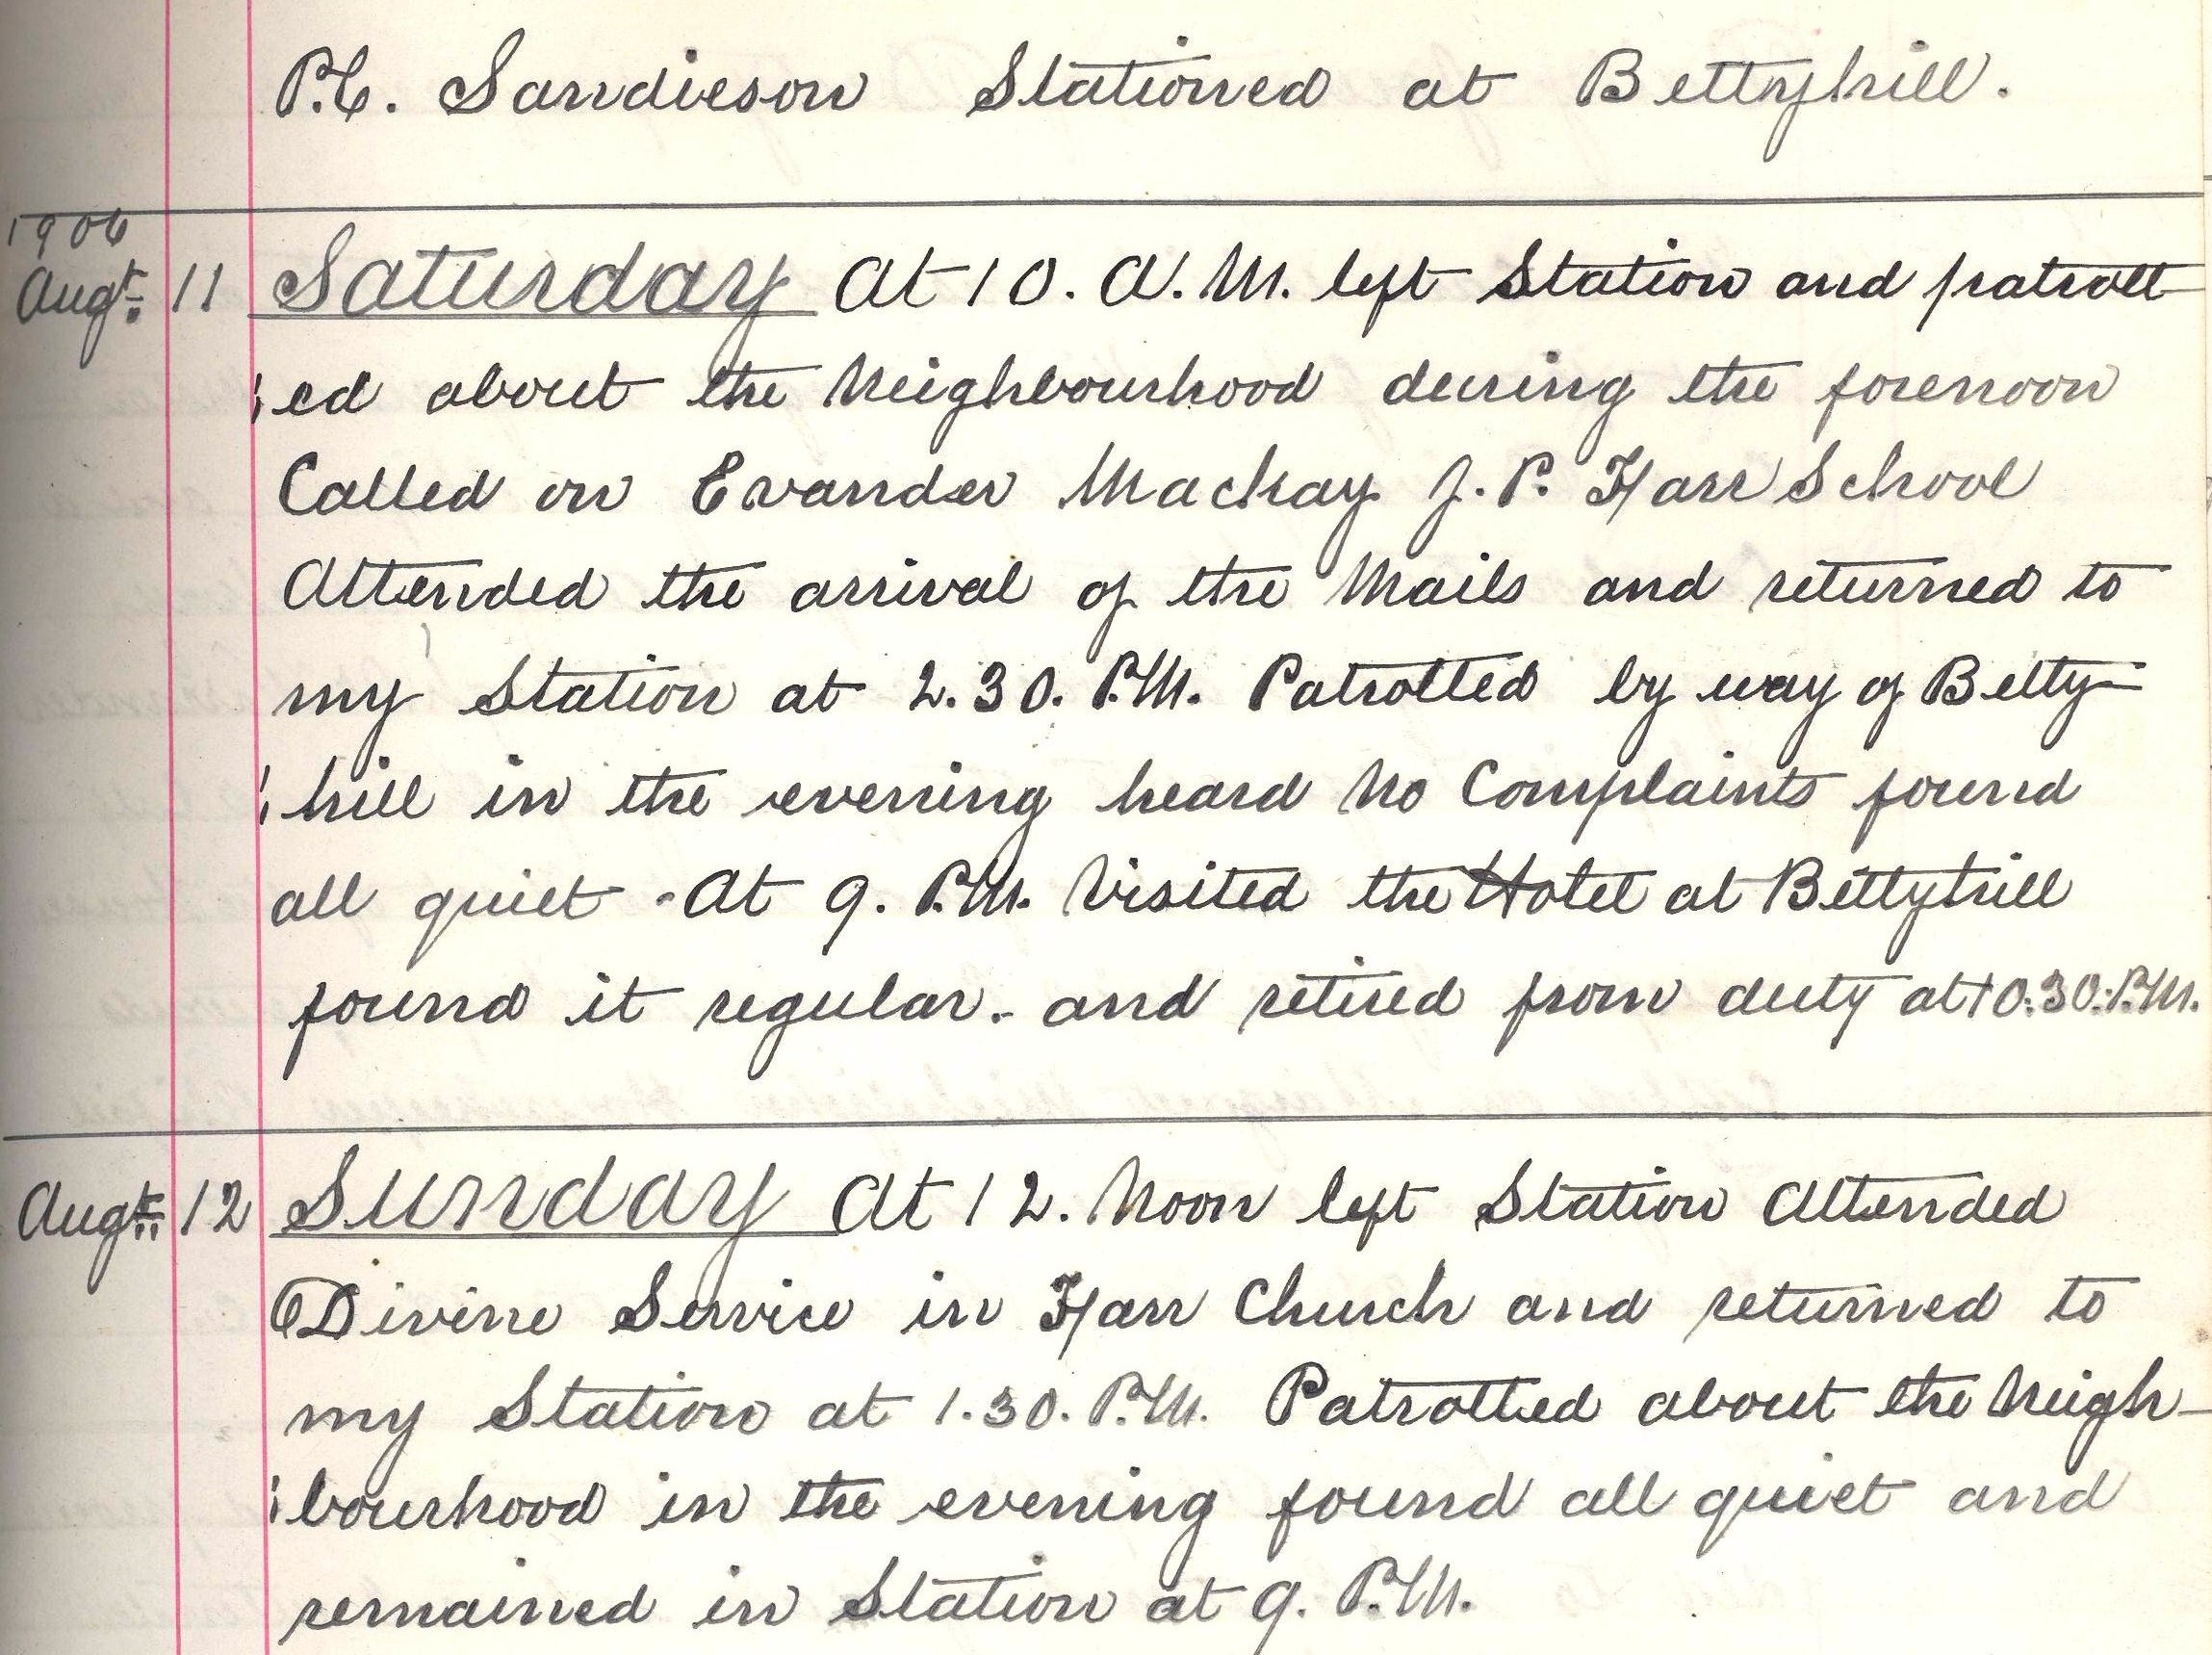 P.C. Sandieson Stationed at Bettyhill.
1906
Augt. 11 Saturday At 10. A.M. left Station and patroll
ed about the Neighbourhood during the forenoon
Called on Evander Mackay J.P. Farr School
Attended the arrival of the Mails and returned to
my Station at 2.30. P.M. Patrolled by way of Betty-
hill in the evening heard No Complaints found
all quiet - At 9. P.M. Visited the Hotel at Bettyhill
found it regular. - and retired from duty at 10.30. P.M.
Augt. 12 Sunday At 12. Noon left Station Attended
Divine Service in Farr Church and returned to
my Station at 1.30. P.M. Patrolled about the Neigh-
bourhood in the evening found all quiet and
remained in Station at 9. P.M.